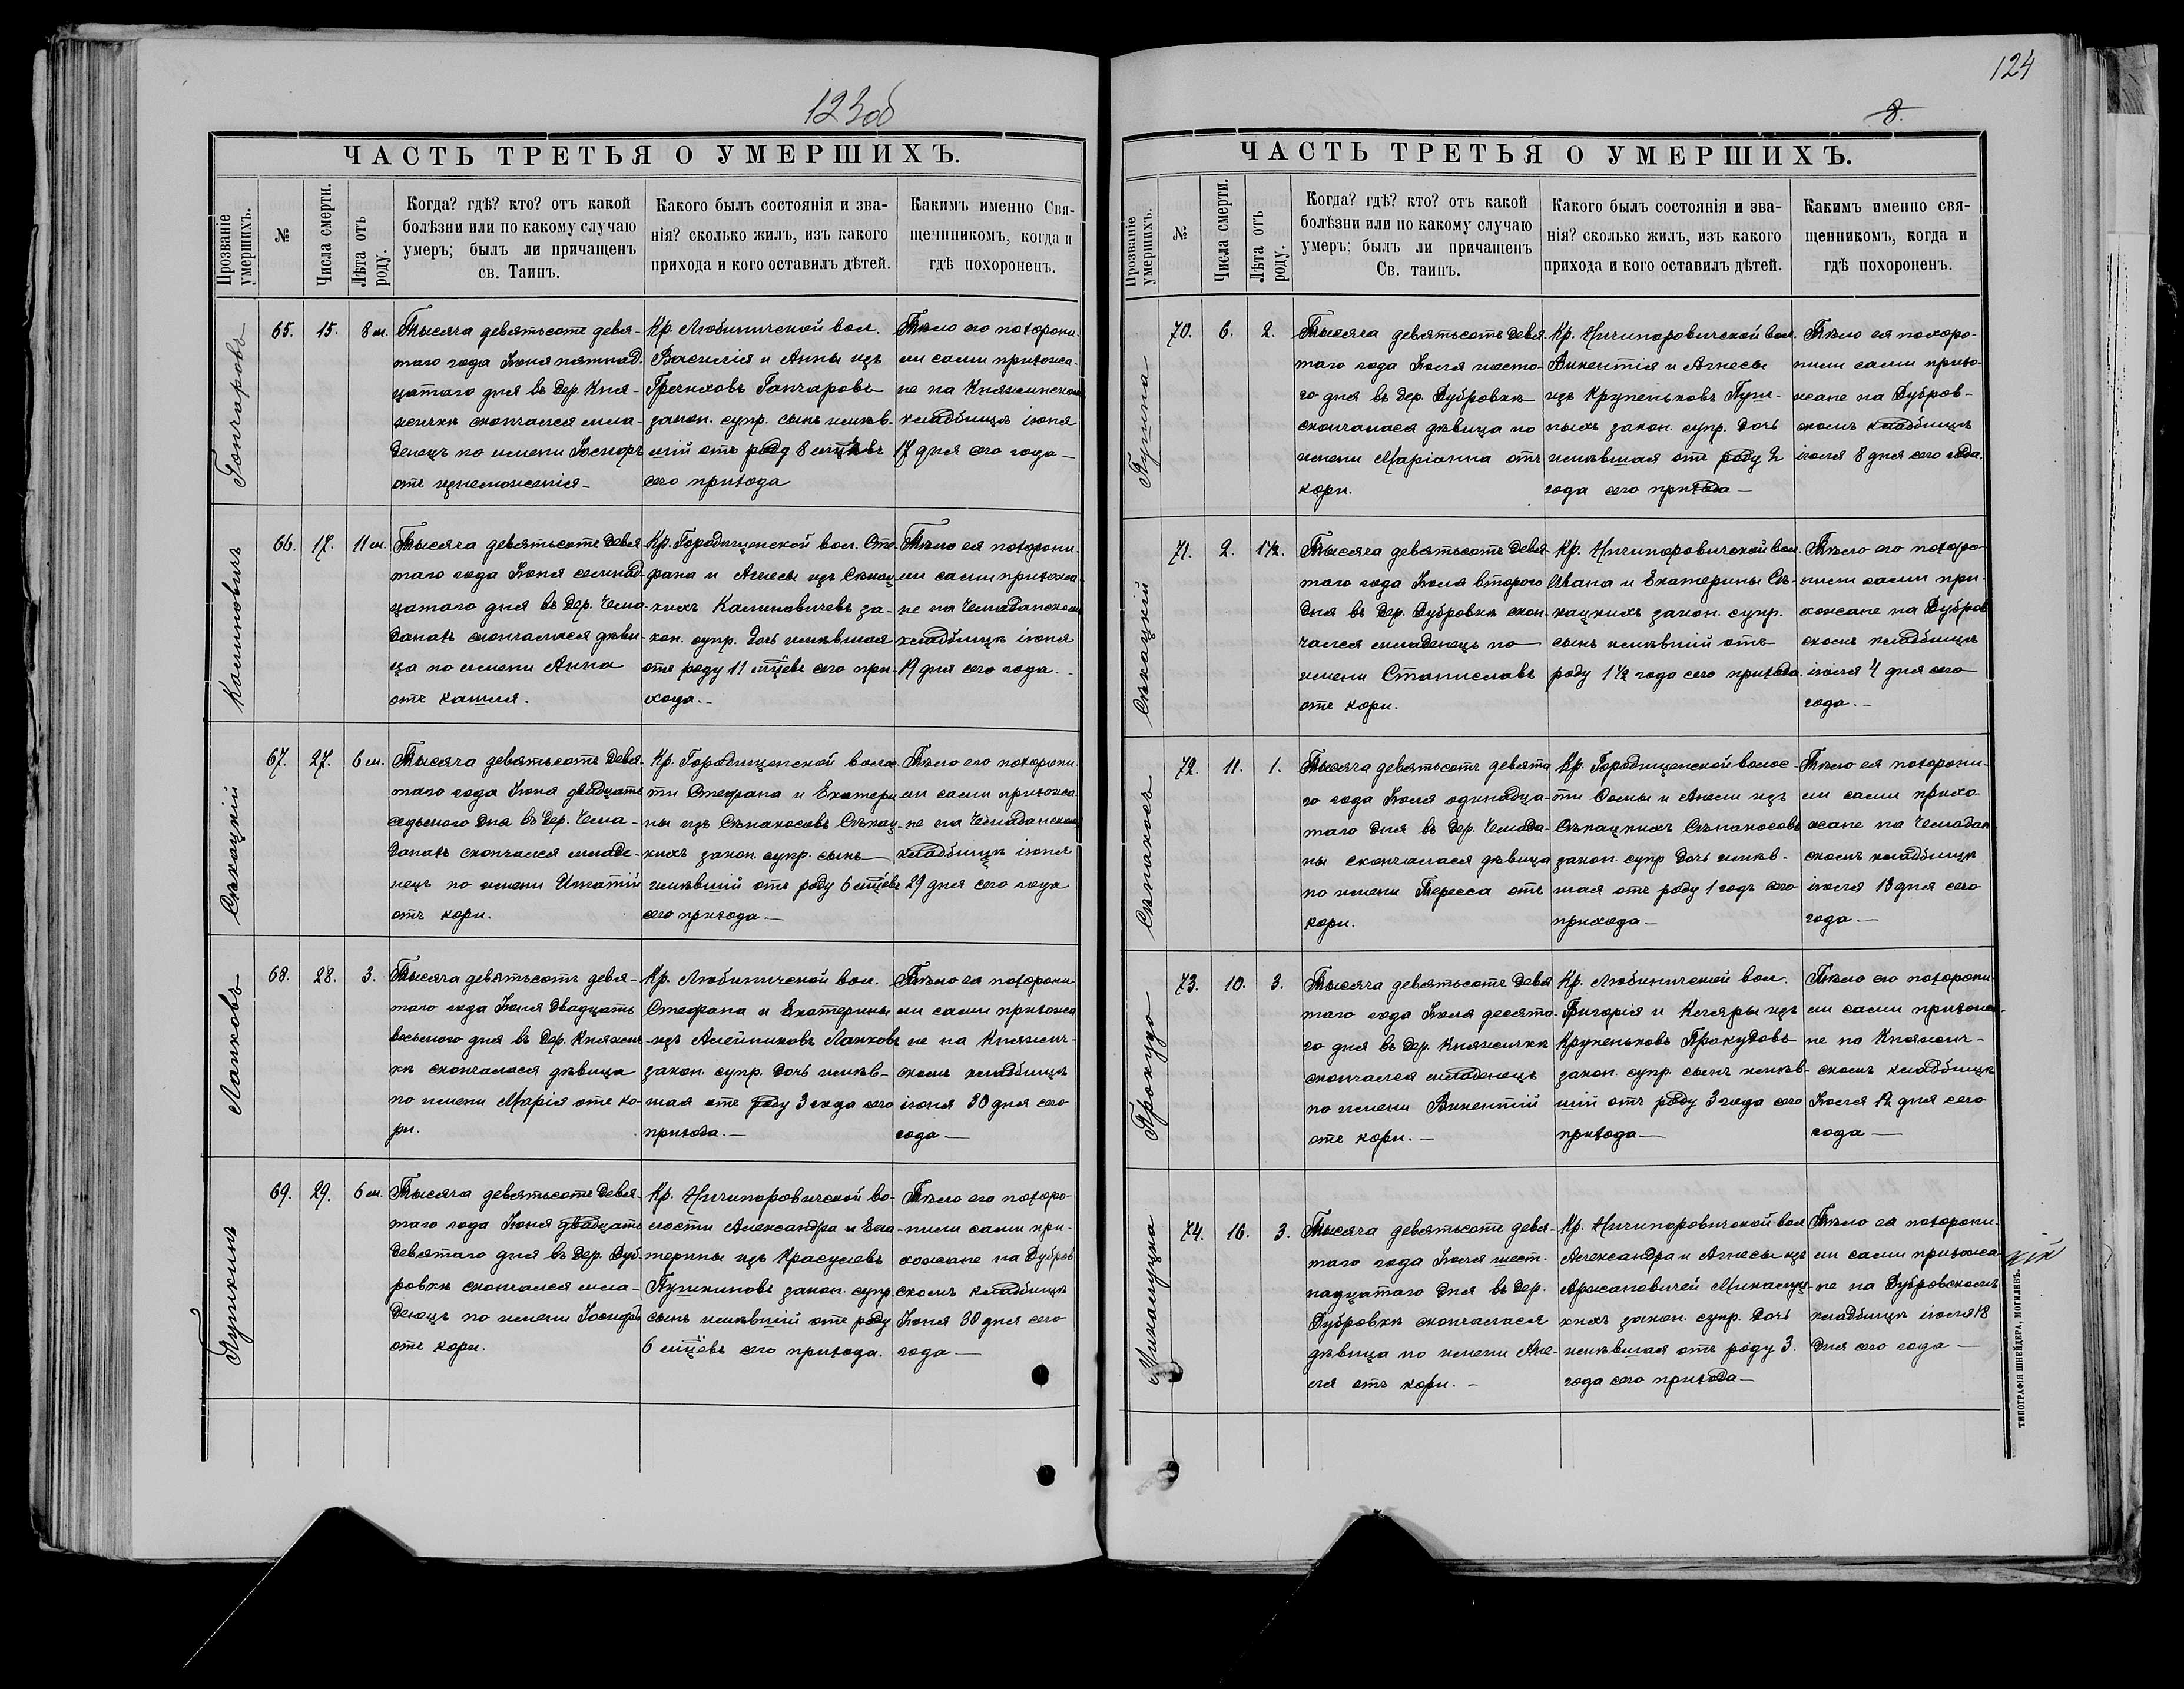 123об
ЧАСТЬ ТРЕТЬЯ О УМЕРШИХЪ.
Прозваніе умершихъ.
№
Числа смерти.
Лѣта отъ роду.
Когда? гдѣ? кто? отъ какой
болѣзни или по какому случаю
умеръ; былъ ли причащенъ
св. Таинъ.
Какого былъ состоянія и зва-
нія? сколько жилъ, изъ какого
прихода и кого оставилъ дѣтей.
Какимъ именно Свя-
щенникомъ, когда и
гдѣ похороненъ.
Гончаровъ
65.
15.
8 м.
Тысяча девятьсотъ девя-
таго года Іюня пятнад-
цатаго дня въ дер. Кня-
жичкѣ скончался мла-
денецъ по имени Іосифъ
отъ изнеможенія-
Кр. Любиничской вол.
Василія и Анны изъ
Гончаровъ
закон. супр. сынъ имѣв-
шій отъ роду 8 мцѣвъ
сего прихода
Тѣло его похорони-
ли сами прихожа-
не на
кладбищѣ іюня
17 дня сего года-
Калиновичъ
66.
17.
11 м.
Тысяча девятьсотъ девя
таго года Іюня семнад-
цатаго дня въ дер. Чема-
данахъ скончалася дѣви-
ца по имени Анна
отъ кашля.
Кр. Городищенской вол. Сте-
фана и Агнесы изъ Сѣкац-
кихъ Калиновичевъ за-
кон. супр. дочь имѣвшая
отъ роду 11 мцевъ сего при-
хода.-
Тѣло ея похорони-
ли сами прихожа-
не на Чемаданскомъ
кладбищѣ іюня
19 дня сего года.
Сѣкацкій
67.
27.
6 м.
Тысяча девятьсотъ девя-
таго года Іюня двадцать
седьмого дня въ дер. Чема-
данахъ скончался младе-
нецъ по имени Игнатій
отъ кори.
Кр. Городищенской волос
ти Стефана и Екатери
ны изъ Сѣнакосовъ Сѣкац-
кихъ закон. супр. сынъ
имѣвшій отъ роду 6 мцевъ
сего прихода-
Тѣло его похорони-
ли сами прихожа-
не на Чемаданскомъ
кладбищѣ іюня
29 дня сего года
Лапковъ
68.
28.
3.
Тысяча девятьсотъ девя-
таго года Іюня двадцать
восьмого дня въ дер. Княжич-
кѣ скончалася дѣвица
по имени Марія отъ ко-
ри.
Кр. Любиничской вол.
Стефана и Екатерины
изъ Алейниковъ Лапковъ
закон. супр. дочь имѣв-
шая отъ роду 3 года сего
прихода.-
Тѣло ея похорони-
ли сами прихожа
не на Княжич-
скомъ кладбищѣ
іюня 30 дня сего
года-
Пушкинъ
69.
29.
6 м.
Тысяча девятьсотъ девя-
таго года Іюня двадцать
девятаго дня въ дер. Дуб-
ровкѣ скончался мла-
денецъ по имени Іосифъ
отъ кори.
Кр. Ничипоровичской во-
лости Александра и Ека-
терины изъ Красулевъ
Пушкиновъ закон. супр.
сынъ имѣвшій отъ роду
6 мцевъ сего прихода.
Тѣло его похоро-
нили сами при-
хожане на Дубров
скомъ кладбищѣ
Іюня 30 дня сего
года-
124
8.
ЧАСТЬ ТРЕТЬЯ О УМЕРШИХЪ.
Прозваніе умершихъ.
№
Числа смерти.
Лѣта отъ роду.
Когда? гдѣ? кто? отъ какой
болѣзни или по какому случаю
умеръ; былъ ли причащенъ
Св. таинъ.
Какого былъ состоянія и зва-
нія? сколько жилъ, изъ какого
прихода и кого оставилъ дѣтей.
Какимъ именно свя-
щенникомъ, когда и
гдѣ похороненъ.
70.
6.
2.
Тысяча девятьсотъ девя
таго года Іюля шесто-
го дня въ дер. Дубровкѣ
скончалася дѣвица по
имени Маріанна отъ
кори.
Кр. Ничипоровичской вол.
Викентія и Агнесы
изъ Крупеньковъ
закон. супр. дочь
имѣвшая отъ роду 2
года сего прихода-
Тѣло ея похоро-
нили сами прихо-
жане на Дубров-
скомъ кладбищѣ
іюля 8 дня сего года.
Сѣкацкій
71.
2.
1½.
Тысяча девятьсотъ девя-
таго года Іюля второго
дня въ дер. Дубровкѣ скон-
чался младенецъ по
имени Станиславъ
отъ кори.
Кр. Ничипоровичской вол.
Ивана и Екатерины Сѣ-
кацкихъ закон. супр.
сынъ имѣвшій отъ
роду 1½ года сего прихода.
Тѣло его похоро-
нили сами при-
хожане на Дубров
скомъ кладбищѣ
іюля 4 дня сего
года.-
Сѣнакосъ
72.
11.
1.
Тысяча девятьсотъ девята
го года Іюля одинадца-
таго дня въ дер. Чемада-
ны скончалася дѣвица
по имени Тересса отъ
кори.
Кр. Городищенской волос-
ти Ѳомы и Анели изъ
Сѣкацкихъ Сѣнакосовъ
закон. супр дочь имѣв-
шая отъ роду 1 годъ сего
прихода-
Тѣло ея похорони-
ли сами прихо
жане на Чемадан
скомъ кладбищѣ
іюля 13 дня сего
года-
Прокудо
73.
10.
3.
Тысяча девятьсотъ девя
таго года Іюля десята-
го дня въ дер. Княжичкѣ
скончался младенецъ
по имени Викентій
отъ кори.-
Кр. Любиничской вол.
Григорія и Кляры изъ
Крупеньковъ Прокудовъ
закон. супр. сынъ имѣв-
шій отъ роду 3 года сего
прихода-
Тѣло его похорони-
ли сами прихожа-
не на Княжич-
скомъ кладбищѣ
Іюля 12 дня сего
года-
74.
16.
3.
Тысяча девятьсотъ девя-
таго года Іюля шест-
надцатаго дня въ дер.
Дубровкѣ скончалася
дѣвица по имени Ане-
ля отъ кори.-
Кр. Ничипоровичской вол
Александра и Агнесы изъ
кихъ закон. супр. дочь
имѣвшая отъ роду 3.
года сего прихода-
Тѣло ея похорони-
ли сами прихожа
не на Дубровскомъ
кладбищѣ іюля 18
дня сего года-
ТИПОГРАФІЯ ШНЕЙДЕРА, МОГИЛЕВЪ.